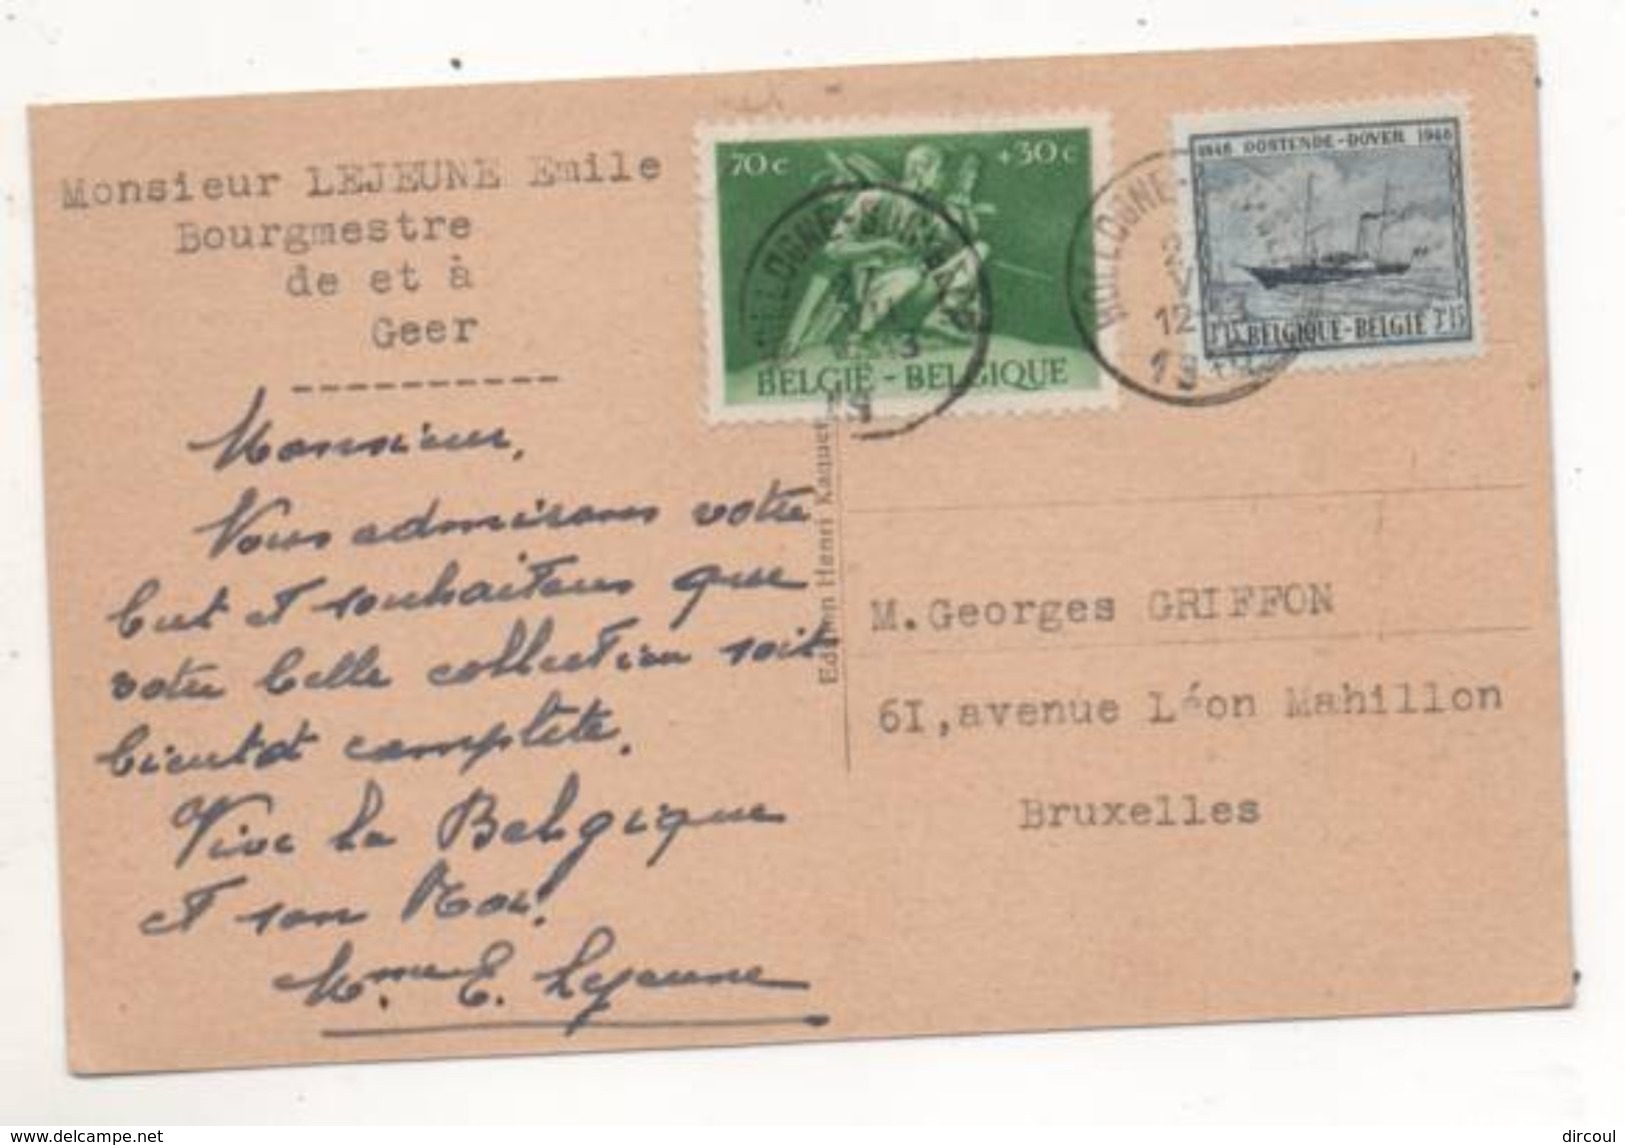 Monsieur LEJEUNE Emile
Bourgmestre
de et à
Geer
----------
Monsieur,
Vous admirons votre
but et souhaitons que
votre belle collection soit
bientôt complète.
Vive la Belgique
et son Roi!
Mme E. Lejeune
70c +30c
BELGIË - BELGIQUE
1846 OOSTENDE-DOVER 1946
3F15 BELGIQUE-BELGIË 3F15
HOLLOGNE-
12
19
Edition Henri Kaquet,
M. Georges GRIFFON
61, avenue Léon Mahillon
Bruxelles
www.delcampe.net
dircoul